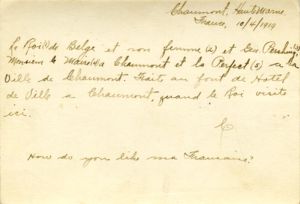 Chaumont, Haute Marne
France, 10/4/1919
Le Roi(1) de Belge et son femme (2) et Gen. Pershing(3)
Monsieur le Maire(4) a Chaumont et la Perfect (5) a la
Ville de Chaumont. Faits au font de Hotel
de Ville a Chaumont, quand le Roi visite
ici.
C
How do you like ma Francaise?